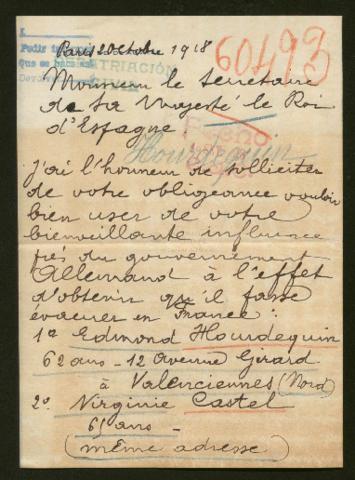 Paris 2 Octobre 1918
60493
Pedir
Que se
REPATRIACIÓN
Monsieur le Secrétaire
de Sa Majesté le Roi
d'Espagne
Hourdequin
J'ai l'honneur de solliciter
de votre obligeance vouloir
bien user de votre
bienveillante influence
près du gouvernement
Allemand à l'effet
d'obtenir qu'il fasse
évacuer en France :
1º Edmond Hourdequin
62 ans - 12 Avenue Girard
à Valenciennes (Nord)
2º Virginie Castel
61 ans -
(même adresse)